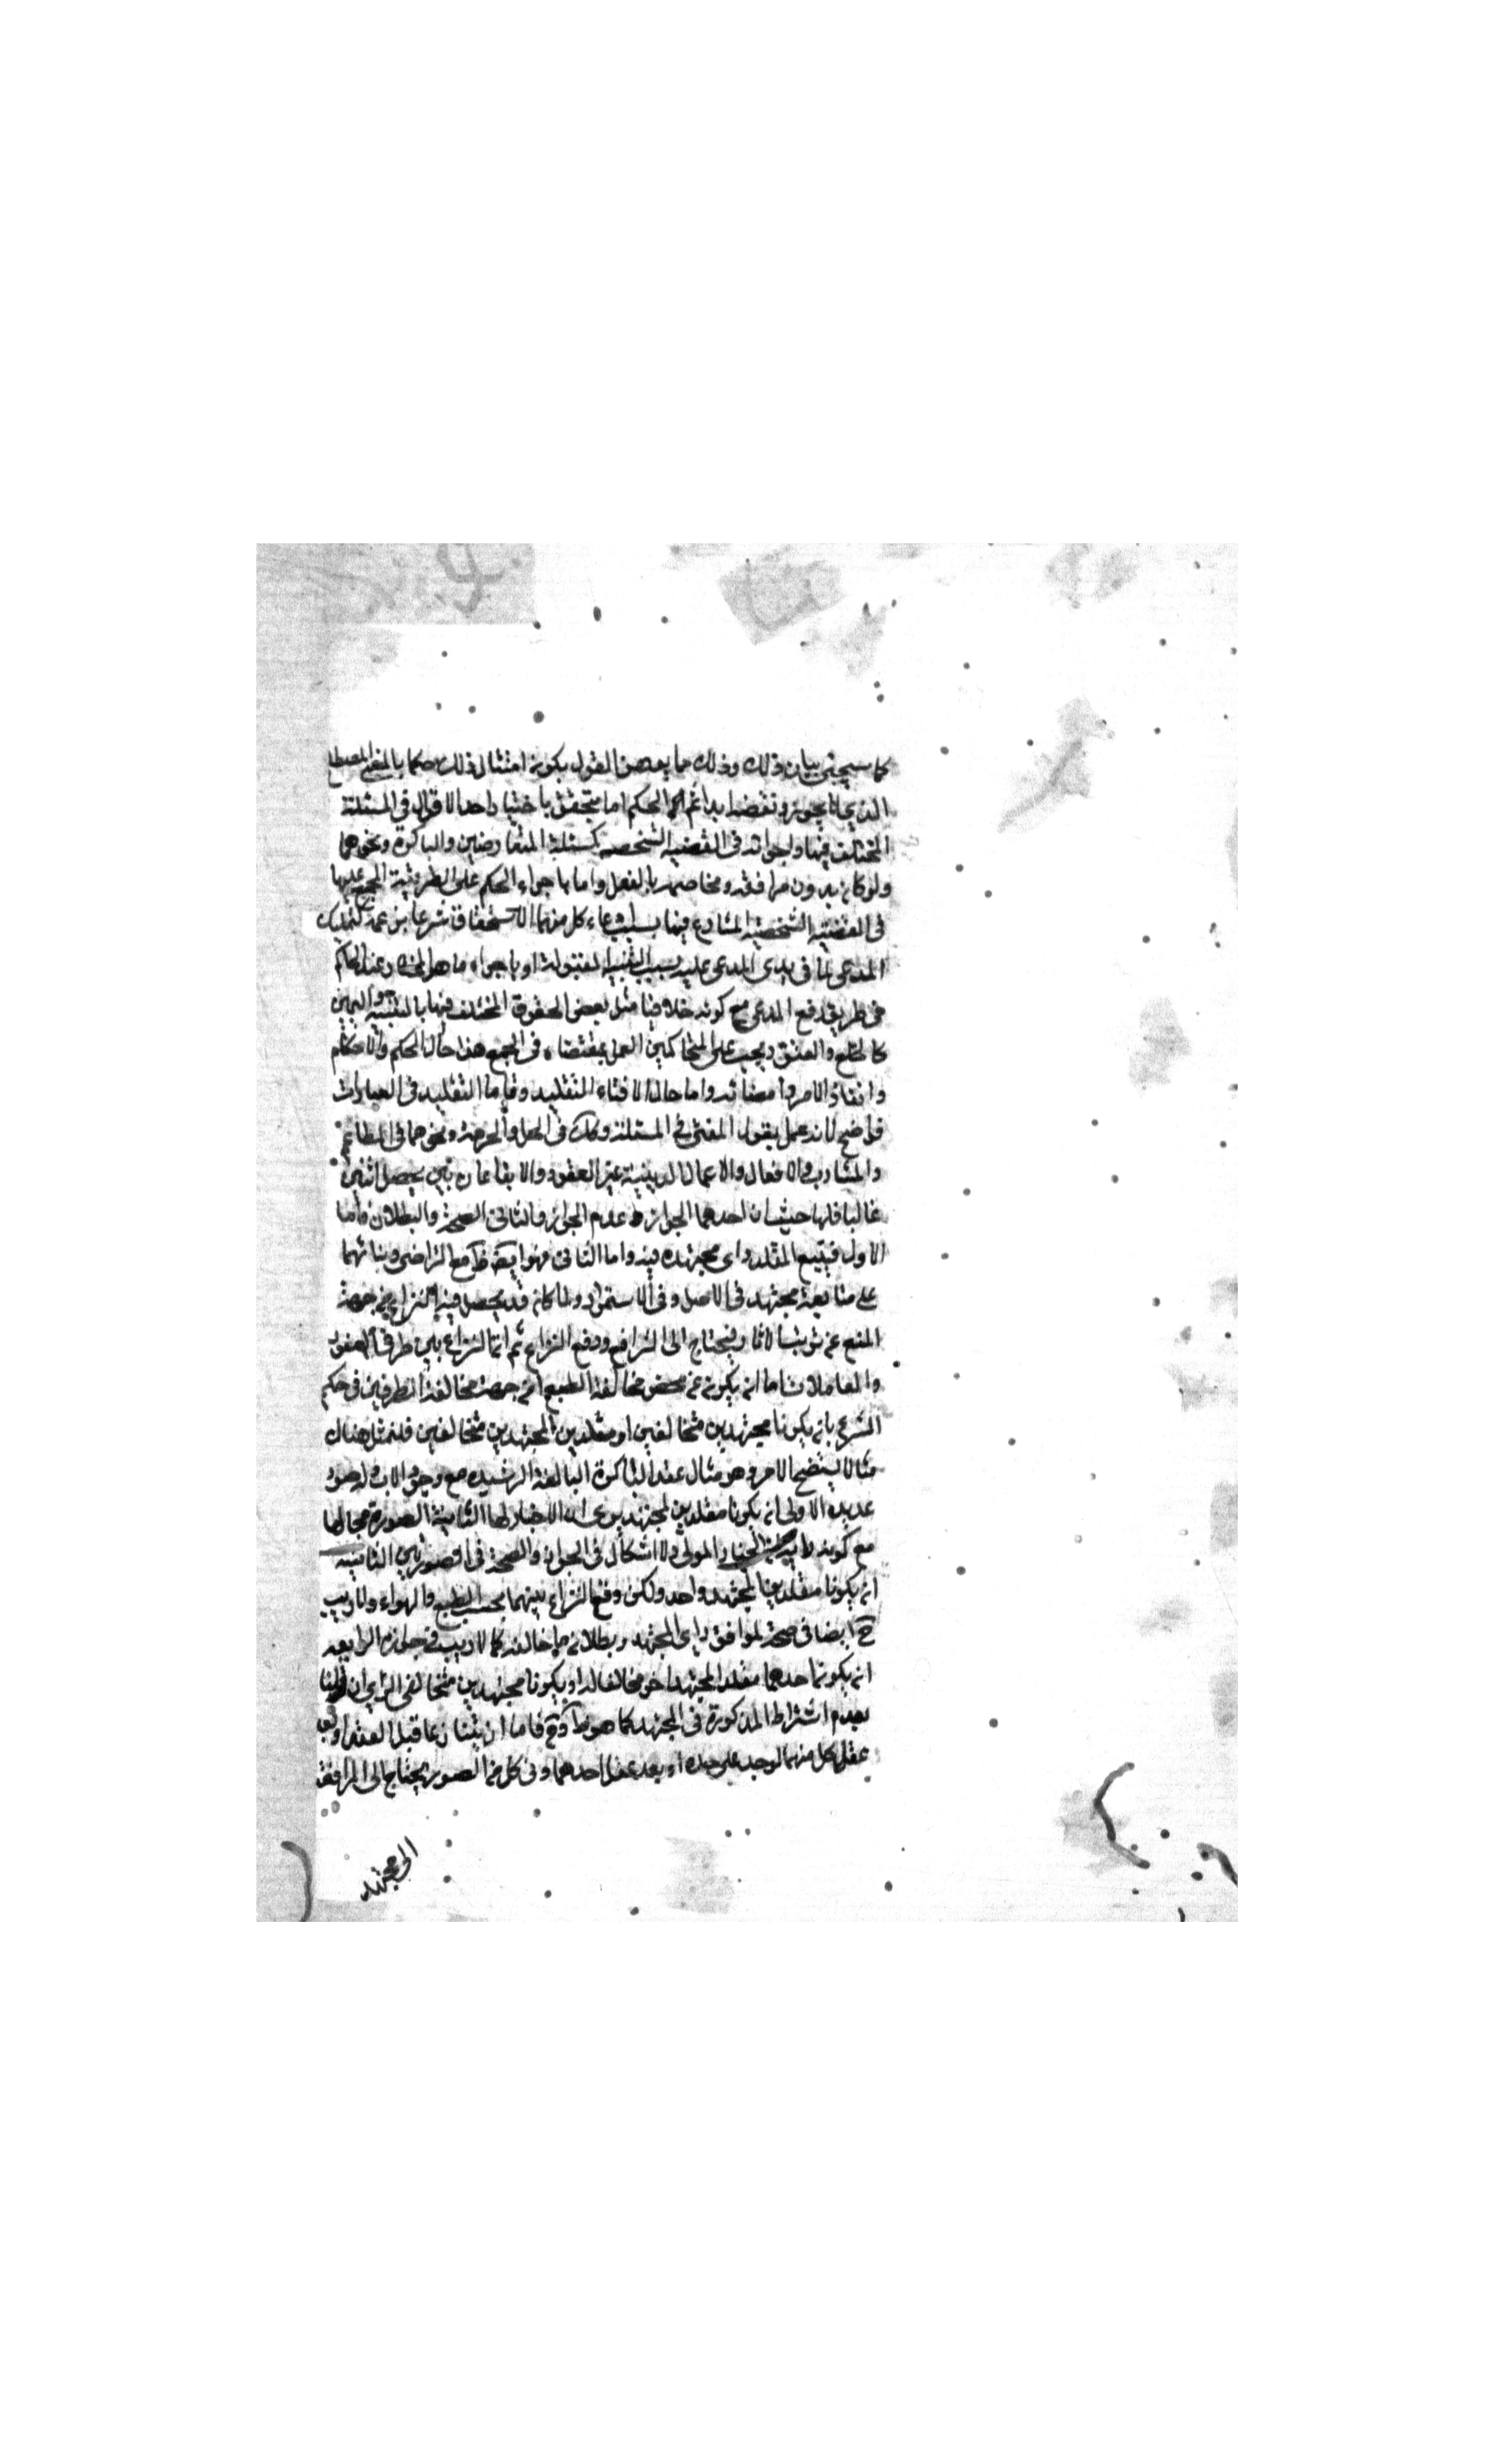 كما سيجئ بيان ذلك وذلك مما يعد من القول بكونه امتثال ذلك حكما بالمعنى المصطلح
الذي لا يجوز نقضه ابدا ثم الحكم اما يتحقق باختيار احد الاقوال في المسئلة
المختلف فيها واجرائه في القضية الشخصية كمسئلة المتعارضين والباكرة ونحوهما
ولو كان بدون مرافعة ومخاصمة بالفعل واما باجراء الحكم على الطريقة المجمع عليها
في القضية الشخصية المتنازع فيها بسبب ادعاء كل منهما الاستحقاق شرعا بزعمه كتمليك
المدعي لما في يدي المدعى عليه بسبب البينة المقبولة او باجراء ما هو المختار عند الحاكم
في طريق دفع المدعي مع كونه خلافيا مثل بعض الحقوق المختلف فيها بالبينة واليمين
كالخلع والعتق ويجب على المتحاكمين العمل بمقتضاه في الجميع هذا حال الحكم والاحكام
وانفاذ الامر وامضائه واما حال الافتاء التقليد وفاما التقليد في العبادات
فواضح لانه عمل بقول المفتي في المسئلة وكذا في الحل والحرمة ونحوهما في المطاعم
والمشارب والافعال والاعمال الدينية غير العقود والايقاعات
غالبا فلها حيثيتان احدهما الجواز وعدم الجواز والثاني الصحة والبطلان واما
الاول فيتبع المقلد راى مجتهده فيه واما الثاني فهو ايضا كك مع التراضي وبنائهما
على متابعة مجتهد في الاصل وفي الاستمرار ولما كان قد يحصل فيه النزاع من جهة
المنع عن ترتب الاثار فيحتاج الى الترافع ودفع النزاع ثم ان النزاع بين طرفي العقود
والمعاملات اما ان يكون عن محض مخالفة الطبع او من جهة مخالفة الطرفين في حكم
الشرع بان يكونا مجتهدين متخالفين او مقلدين لمجتهدين متخالفين فلنمثل هناك
مثالا ليتضح الامر وهو مثال عقد الباكرة البالغة الرشيدة مع وجود الاب وله صور
عديدة الاولى ان يكونا مقلدين لمجتهد يرى ان الاختيار لها الثانية الصورة بحالها
مع كونه لا الخيار للولي ولا اشكال في الجواز والصحة في الصورتين الثانية
ان يكونا مقلدين لمجتهد واحد ولكن وقع النزاع بينهما بحسب الطبع والهواء ولا ريب
ح ايضا في صحة الموافق لراى المجتهد وبطلان ما خالفه كما لا ريب في الرابعة
ان يكون احدهما مقلدا لمجتهد اخر مخالفا له او يكونا مجتهدين متخالفي الراى ان قلنا
بعدم اشتراط المذكورة في المجتهد كما هو فاما ان يتنازعا قبل العقد او بعد
عقد كل منهما لوحد على حده او بعد عقد احدهما وفي كل من الصور يحتاج الى المرافعة
الى مجتهد